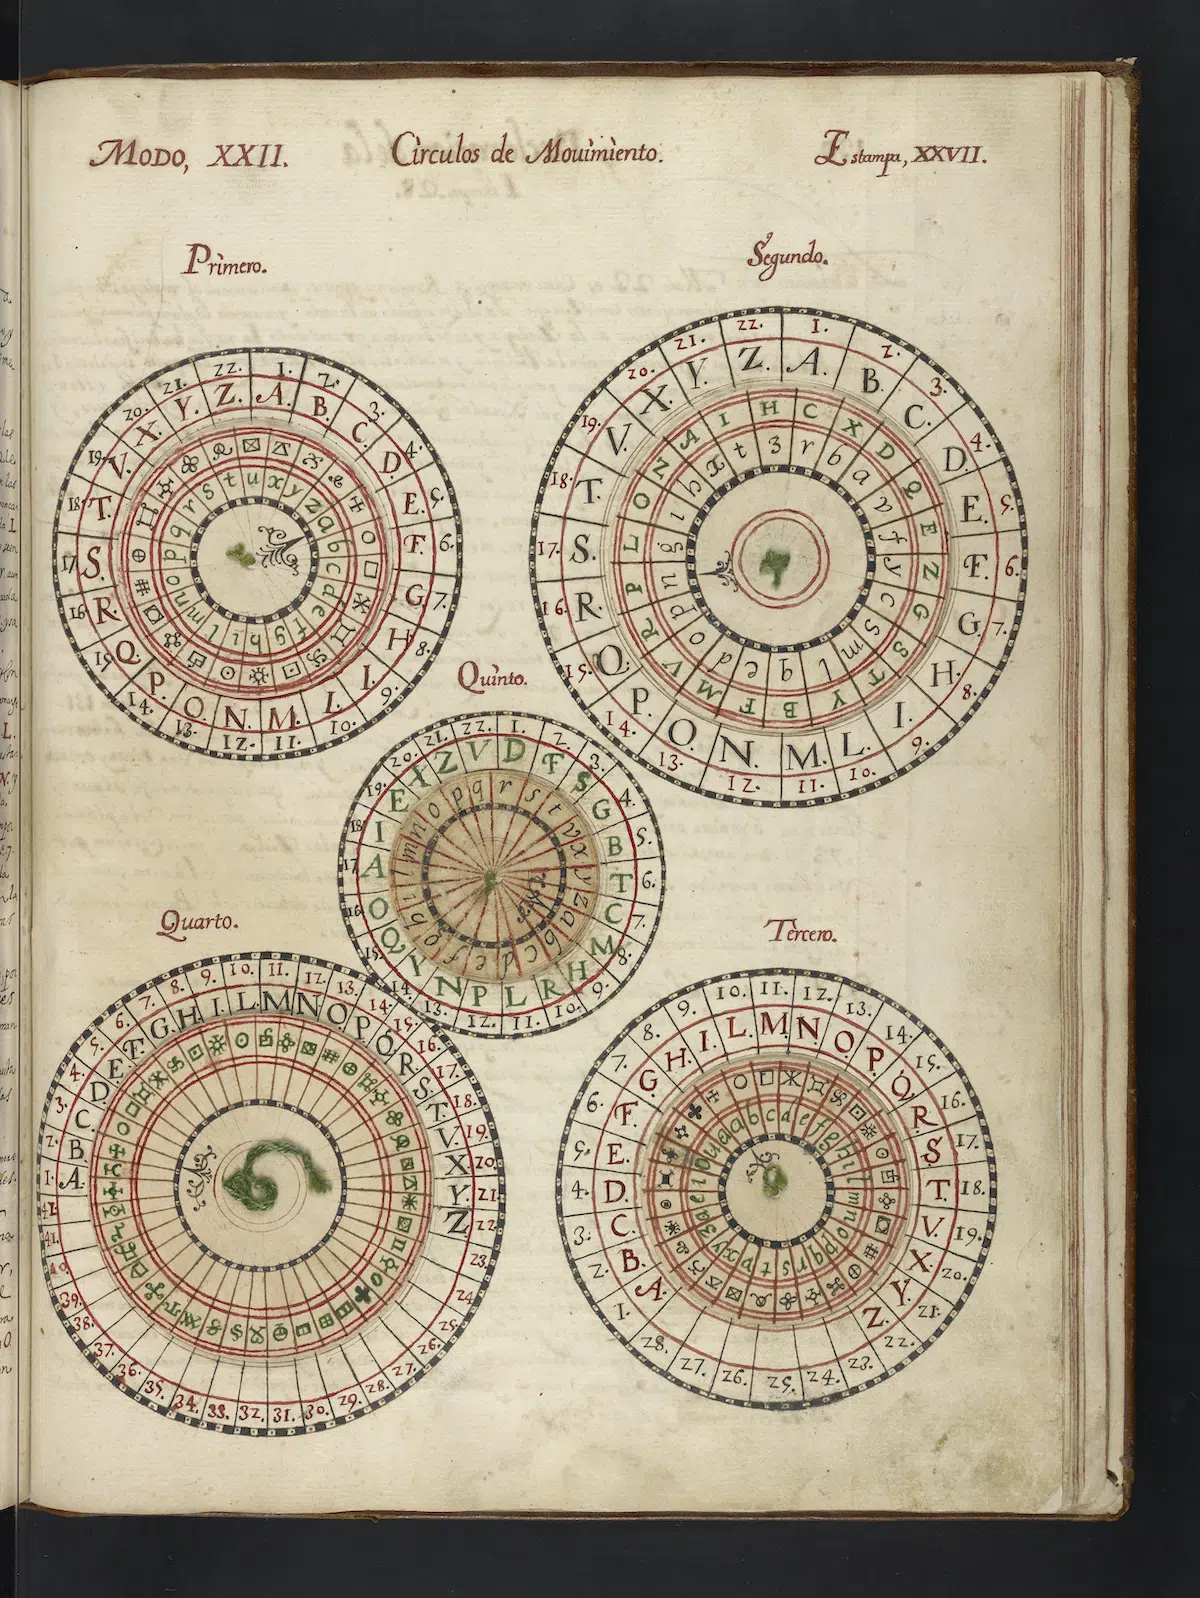 Modo, XXII. Circulos de Mouimiento. Estampa, XXVII.
Primero.
1. 2. 3. 4. 5. 6. 7. 8. 9. 10. 11. 12. 13. 14. 15. 16. 17. 18. 19. 20. 21. 22.
A. B. C. D. E. F. G. H. I. L. M. N. O. P. Q. R. S. T. V. X. Y. Z.
a b c d e f g h i l m n o p q r s t u x y z
Segundo.
1. 2. 3. 4. 5. 6. 7. 8. 9. 10. 11. 12. 13. 14. 15. 16. 17. 18. 19. 20. 21. 22.
A. B. C. D. E. F. G. H. I. L. M. N. O. P. Q. R. S. T. V. X. Y. Z.
C X D Q E Z G S T Y B F M V R P L O N A I H
r b a v f y c s m l q e d o p n g i h x t z
Quinto.
1. 2. 3. 4. 5. 6. 7. 8. 9. 10. 11. 12. 13. 14. 15. 16. 17. 18. 19. 20. 21. 22.
D F S G B T C M H R L P N Y Q O A I E X Z V
r s t v x y z a b c d e f g h i l m n o p q
Quarto.
1. 2. 3. 4. 5. 6. 7. 8. 9. 10. 11. 12. 13. 14. 15. 16. 17. 18. 19. 20. 21. 22. 23. 24. 25. 26. 27. 28. 29. 30. 31. 32. 33. 34. 35. 36. 37. 38. 39. 40. 41.
A. B. C. D. E. F. G. H. I. L. M N O. P. Q. R. S. T. V. X. Y. Z
Tercero.
1. 2. 3. 4. 5. 6. 7. 8. 9. 10. 11. 12. 13. 14. 15. 16. 17. 18. 19. 20. 21. 22. 23. 24. 25. 26. 27. 28.
A. B. C. D. E. F. G. H. I. L. M. N O. P. Q R S. T. V. X. Y. Z.
a b c d e f g h i l m n o p q r s t v x y z a e i o u